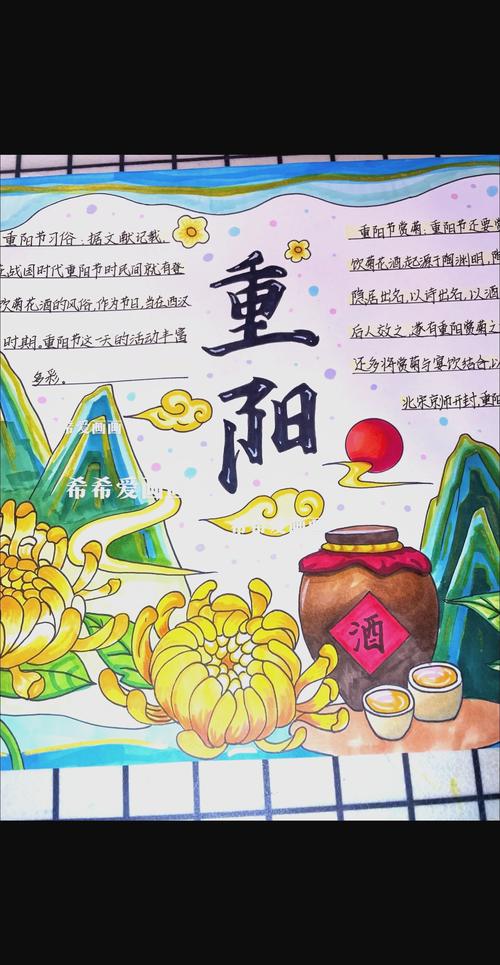 重阳节习俗：据文献记载，
战国时代重阳节时民间就有登
饮菊花酒的风俗，作为节日，当在西汉
时期。重阳节这一天的活动丰富
多彩。
重
阳
重阳节赏菊：重阳节还要赏
饮菊花酒，起源于陶渊明，陶
隐居出名，以诗出名，以酒
后人效之，遂有重阳赏菊之
还多将赏菊与宴饮结合，以
北宋京师开封，重阳
酒
希爱画画
希希爱画画
希希爱画画